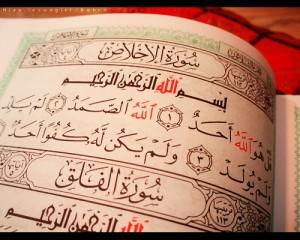 سُورَةُ الْإِخْلَاصِ
بِسْمِ اللَّهِ الرَّحْمَٰنِ الرَّحِيمِ
قُلْ هُوَ اللَّهُ أَحَدٌ ١ اللَّهُ الصَّمَدُ ٢ لَمْ يَلِدْ
وَلَمْ يُولَدْ ٣ وَلَمْ يَكُن لَّهُ كُفُوًا أَحَدٌ
سُورَةُ الْفَلَقِ
١١٣
اللَّهِ الرَّحْمَٰنِ